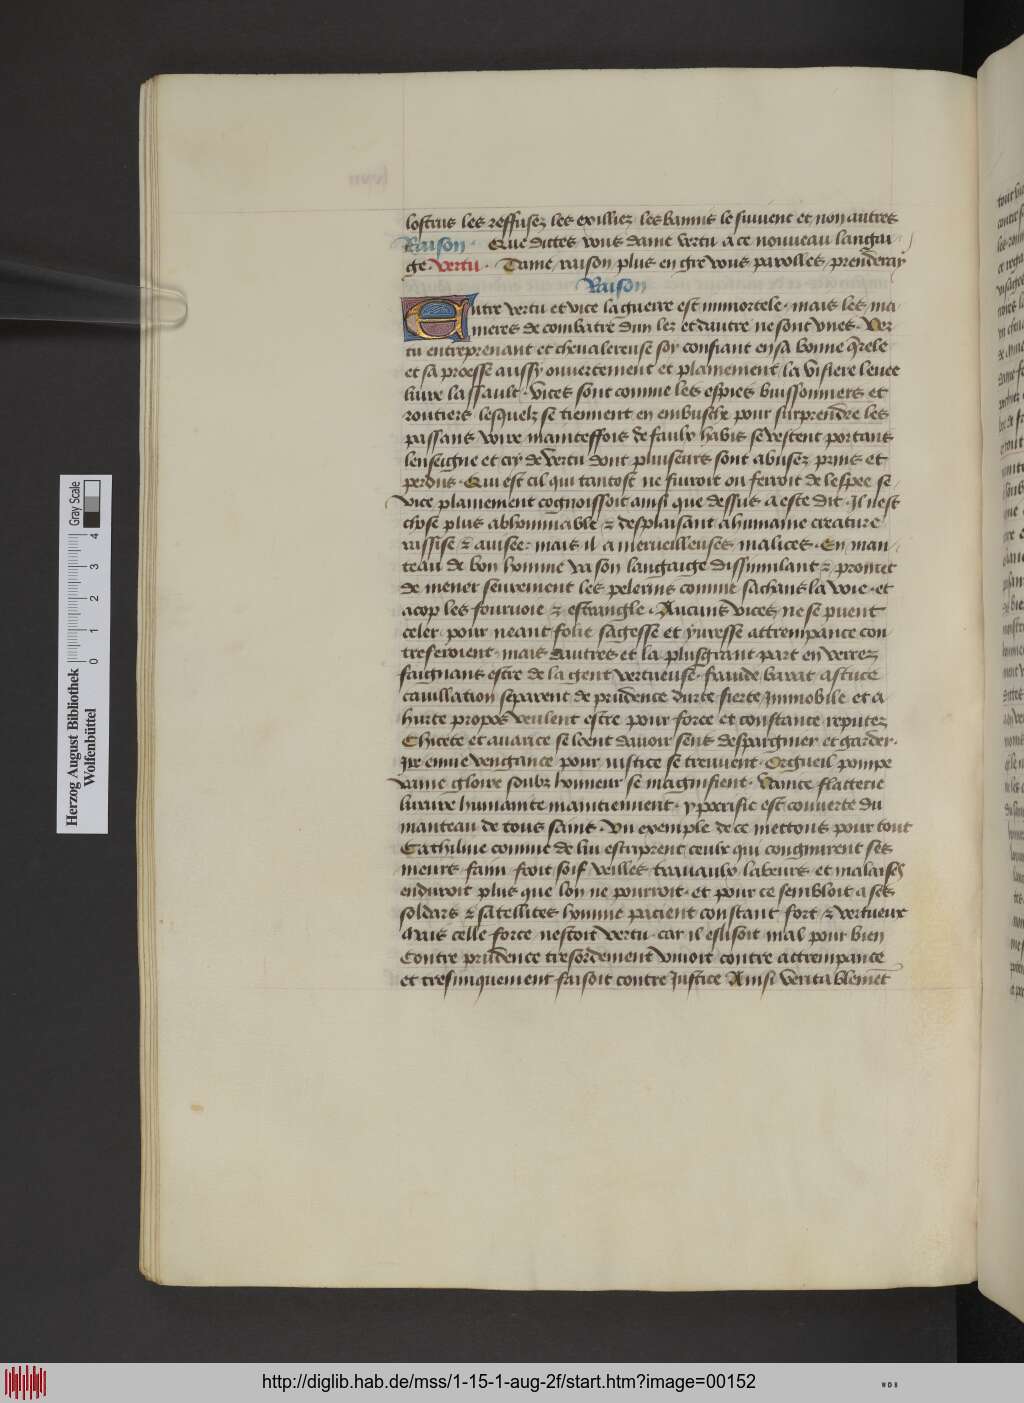 lostrus les reffusez les exilliez les bannis le suivent et non autres
Raison. Que dictes vous dame vertu a ce nouveau langai-
ge. Vertu. Dame raison plus en gre vous parolles prenderay
Raison
Entre vertu et vice la guerre est immortele. mais les ma-
nieres de combatre dun lez et dautre ne sont unes. Ver-
tu entreprenant et chevalereuse soy confiant en sa bonne querele
et sa proesse aussy ouvertement et plainement la visiere levee
livre lassault. Vices sont comme les espies buissonniers et
routiers lesquelz se tiennent en embusche pour surprendre les
passans voire mainteffois de faulx habis se vestent portans
lenseigne et cry de vertu dont pluiseurs sont abusez prins et
perdus. Qui est cil qui tantost ne fuiroit ou feroit de lespee se
vice plainement cognoissoit ainsi que dessus a este dit. Il nest
chose plus abhominable & desplaisant a humaine creature
rassise & avisee: mais il a merveilleuses malices. En man-
teau de bon homme va son langaige dissimulant & promet
de mener seurement les pelerins comme sachans la voie. et
acop les fourvoie & estrangle. Aucuns vices ne se puent
celer. pour neant folie sagesse et yvresse attrempance con-
treferoient. mais dautres et la plusgrant part en verrez
faignans estre de la gent vertueuse. fraude barat astuce
cavillation separent de prudence durte fierte Immobile et a
hurte propos veulent estre pour force et constance reputez
Chicete et avarice se loent davoir sens despargnier et garder.
Ire envie vengance pour iustice se treuvent. Orgueil pompe
vaine gloire soubz honneur se magnifient. Vanite flatterie
luxure humanite maintiennent. ypocrisie est couverte du
manteau de tous sains. Un exemple de ce mettons pour tout
Cathiline comme de lui escriprent ceulx qui congnurent ses
meurs. faim froit soif veilles travaulx labeurs et malaises
enduroit plus que lon ne pourroit. et pour ce sembloit a ses
soldars & satellites homme pacient constant fort & vertueux
Mais celle force nestoit vertu. car il eslisoit mal pour bien
Contre prudence tresordement vivoit contre attrempance
et tresiniquement faisoit contre Justice Ainsi veritablement
Herzog August Bibliothek
Wolfenbüttel
0 1 2 3 4
Gray Scale
http://diglib.hab.de/mss/1-15-1-aug-2f/start.htm?image=00152